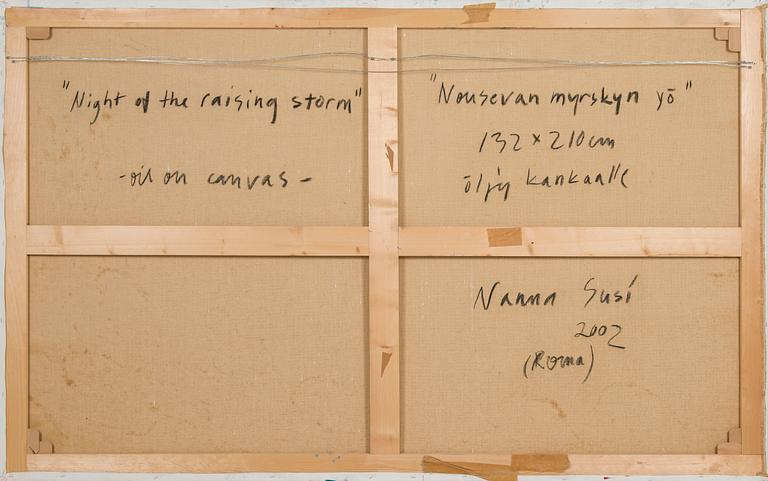 "Night of the raising storm"
-oil on canvas-
"Nousevan myrskyn yö"
132 x 210 cm
öljy kankaalle
Nanna Susi
2002
(Roma)